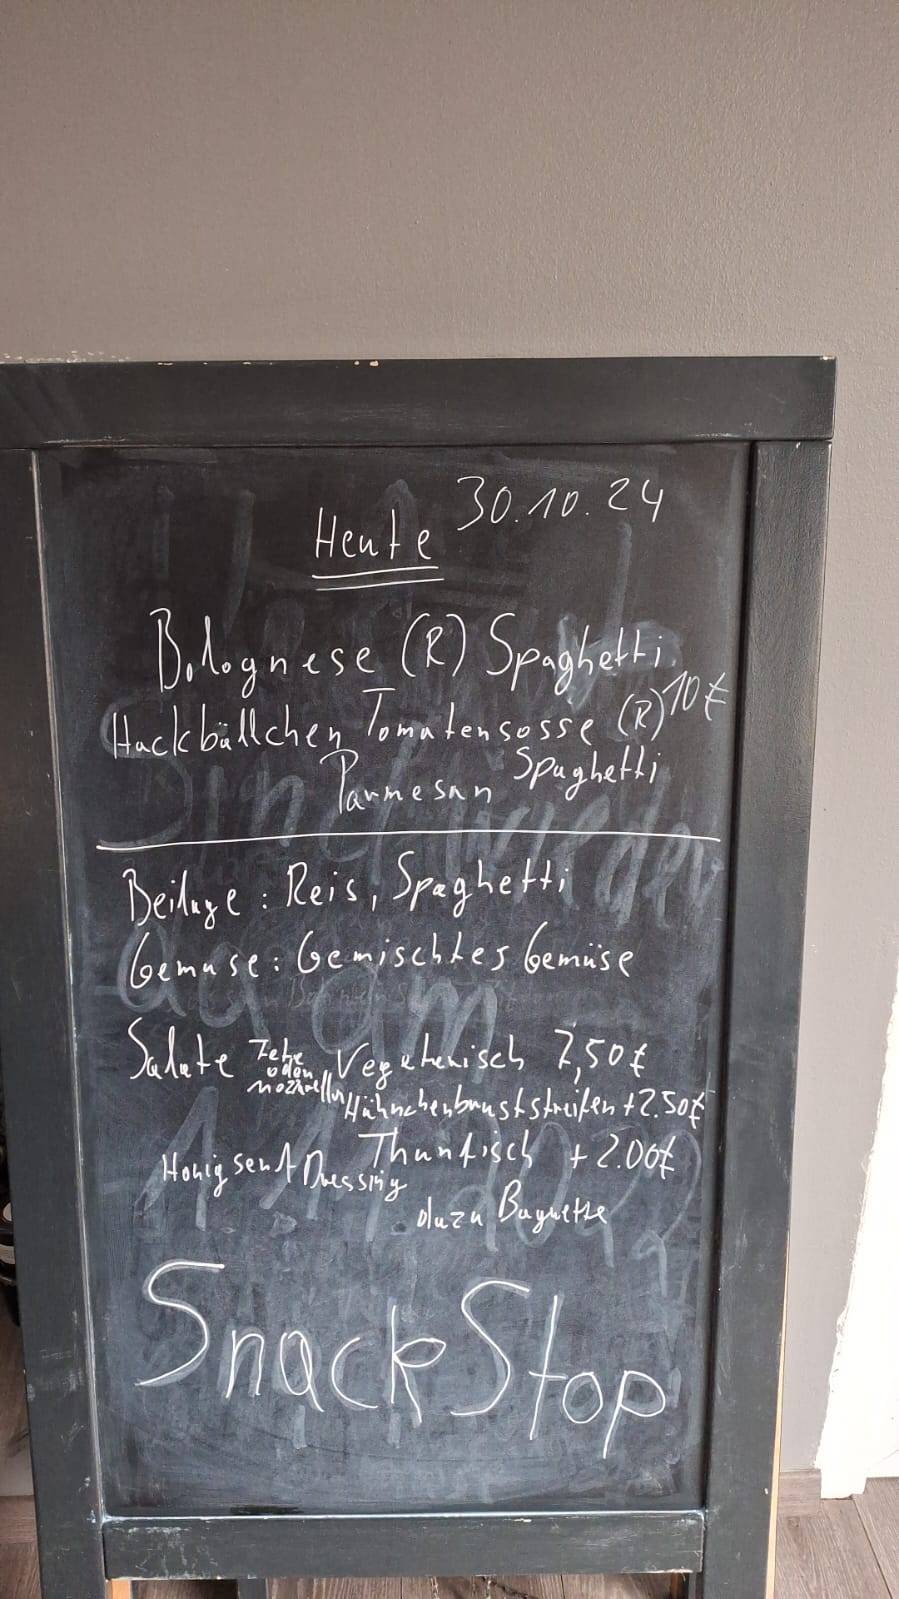 Heute 30.10.24
Bolognese (R) Spaghetti
Hackbällchen Tomatensosse (R) 10€
Parmesan Spaghetti
Beilage: Reis, Spaghetti
Gemuse: Gemischtes Gemüse
Salate Vegetarisch 7,50€
oder
Mozzarella
Hähnchenbruststreifen +2.50€
Thunfisch +2.00€
Honig senf Dressing
dazu Baguette
SnackStop